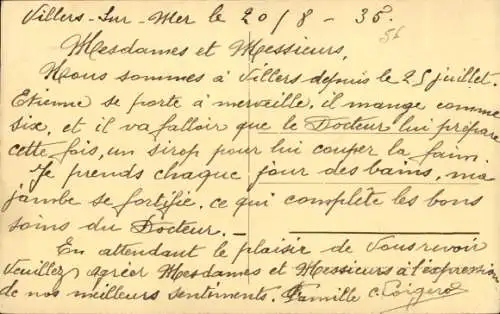 Villers-Sur-Mer le 20/8-35.
56
Mesdames et Messieurs,
Nous sommes à Villers depuis le 25 juillet.
Etienne se porte à merveille, il mange comme
six, et il va falloir que le Docteur lui prépare
cette fois, un sirop pour lui couper la faim.
Je prends chaque jour des bains, ma
jambe se fortifie, ce qui complète les bons
soins du Docteur._
En attendant le plaisir de Vous revoir
Veuillez agréer Mesdames et Messieurs à l'expression
de nos meilleurs sentiments. Famille